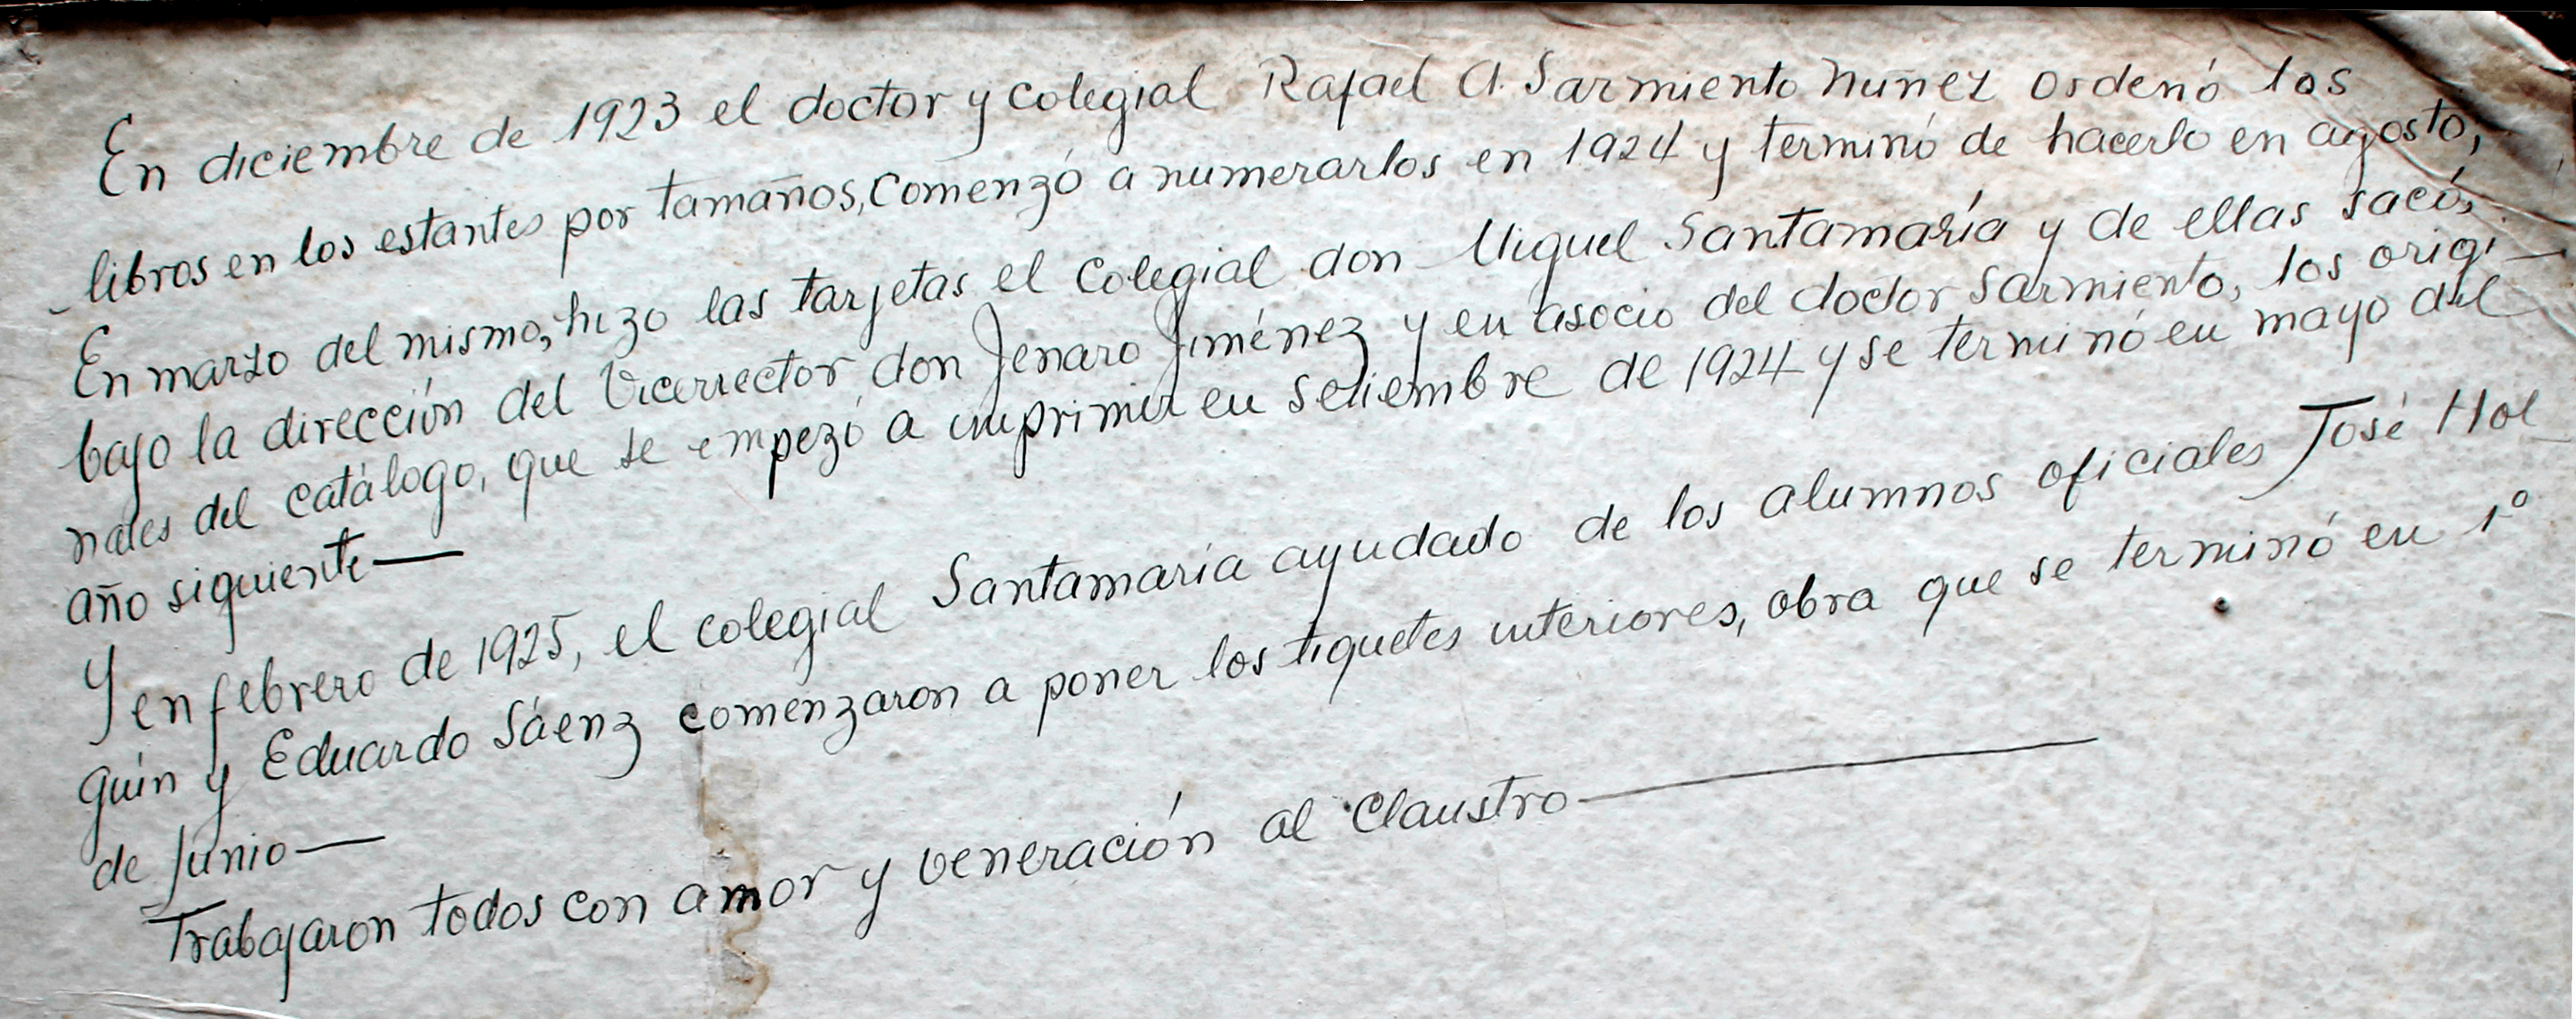 En diciembre de 1923 el doctor y colegial Rafael A. Sarmiento Nuñez ordenó los
libros en los estantes por tamaños, comenzó a numerarlos en 1924 y terminó de hacerlo en agosto;
En marzo del mismo, hizo las tarjetas el colegial don Miguel Santamaría y de ellas sacó,
bajo la dirección del Vicerrector don Jenaro Jiménez y en asocio del doctor Sarmiento, los origi-
nales del catálogo, que se empezó a imprimir en setiembre de 1924 y se terminó en mayo del
año siguiente—
Y en febrero de 1925, el colegial Santamaría ayudado de los alumnos oficiales José Hol-
guin y Eduardo Sáenz comenzaron a poner los tiquetes interiores, obra que se terminó en 1°
de Junio—
Trabajaron todos con amor y veneración al Claustro—